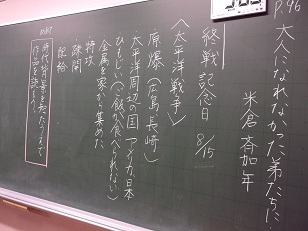 P.96
大人になれなかった弟たちに…
米倉斉加年
終戦記念日 8/15
〈太平洋戦争〉
原爆(広島、長崎)
・太平洋周辺の国 アメリカ 日本
ひもじい(ご飯が食べられない)
金属を家から集めた。
特攻
疎開
配給
時代背景を知ったうえで
作品を読もう。